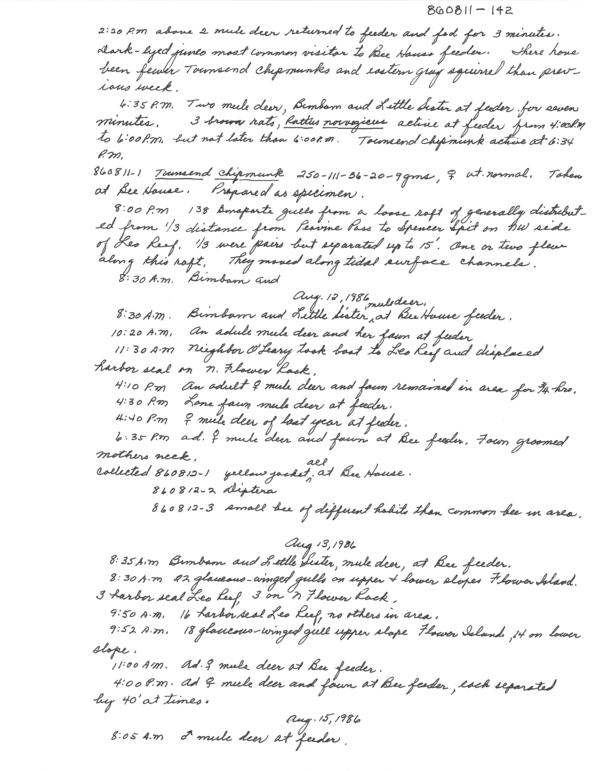 860811-142
2:20 P.M above 2 mule deer returned to feeder and fed for 3 minutes.
Dark-eyed junco most common visitor to Bee House feeder. There have
been fewer Townsend Chipmunks and eastern gray squirrel than prev-
ious week.
6:35 P.M. Two mule deer, Bimbam and Little Sister at feeder for seven
minutes. 3 brown rats, Rattus norvegicus active at feeder from 4:00 P.M
to 6:00 P.M. but not later than 6:00 P.M. Townsend chipmunk active at 6:34
P.M.
860811-1 Townsend chipmunk 250-111-36-20-9gms, ♀ ut. normal. Taken
at Bee House. Prepared as specimen.
8:00 P.M 138 Bonaparte gulls from a loose raft of generally distribut-
ed from 1/3 distance from Peavine Pass to Spencer Spit on NW side
of Leo Reef. 1/3 were pairs but separated up to 15'. One or two flew
along this raft. They moved along tidal surface channels.
8:30 A.M. Bimbam and
Aug. 12, 1986
8:30 A.M. Bimbam and Little Sister, mule deer, at Bee House feeder.
10:20 A.M. An adult mule deer and her fawn at feeder
11:30 A.M Neighbor O'Leary took boat to Leo Reef and displaced
harbor seal on N. Flower Rock.
4:10 P.M An adult ♀ mule deer and fawn remained in area for 3/4 hrs.
4:30 P.M Lone fawn mule deer at feeder.
4:40 P.M ♀ mule deer of last year at feeder.
6:35 P.M ad. ♀ mule deer and fawn at Bee feeder. Fawn groomed
mothers neck.
Collected 860812-1 yellow jacket, all at Bee House.
860812-2 Diptera
860812-3 small bee of different habits than common bee in area.
Aug 13, 1986
8:35 A.M Bimbam and Little Sister, mule deer, at Bee feeder.
8:30 A.M 22 glaucous-winged gulls on upper + lower slopes Flower Island.
3 harbor seal Leo Reef, 3 on N Flower Rock.
9:50 A.M. 16 harbor seal Leo Reef, no others in area.
9:52 A.M. 18 glaucous-winged gull upper slope Flower Island, 14 on lower
slope.
11:00 A.M. Ad. ♀ mule deer at Bee feeder.
4:00 P.M. Ad ♀ mule deer and fawn at Bee feeder, each separated
by 40' at times.
Aug. 15, 1986
8:05 A.M ♂ mule deer at feeder.